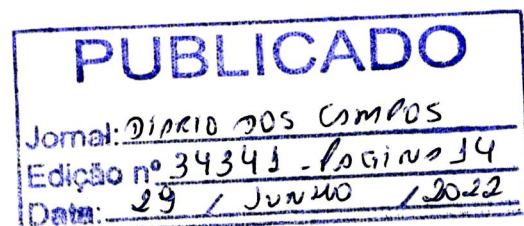 PUBLICADO
Jornal: DIÁRIO DOS CAMPOS
Edição nº 34341 - PÁGINA 14
Data: 29 / JUNHO / 2022